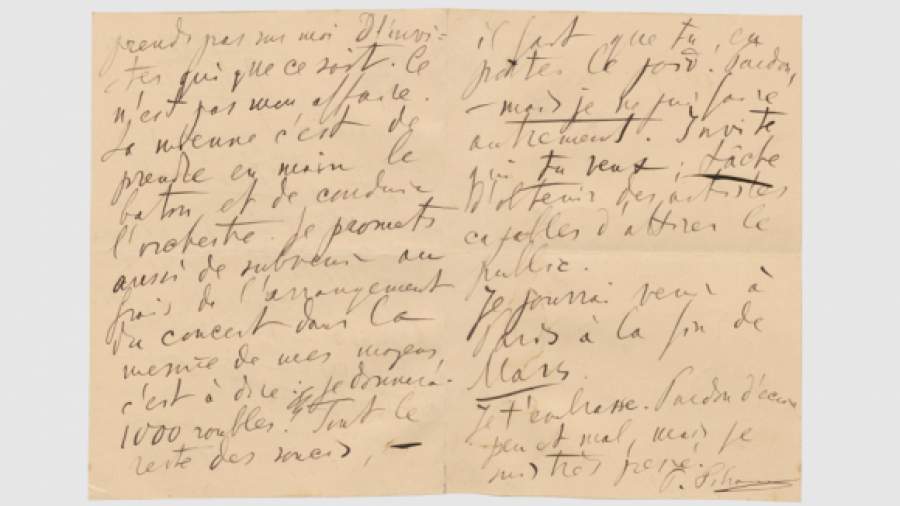 prends pas sur moi d'invi-
ter qui que ce soit. Ce
n'est pas mon affaire.
La mienne c'est de
prendre en main le
baton et de conduire
l'orchestre. Je promets
aussi de subvenir au
frais de l'arrangement
du concert dans la
mesure de mes moyens,
c'est à dire je donnerai
1000 roubles. Tout le
reste des soucis, —
il faut que tu en
portes le poid. Pardon,
— mais je ne puis faire
autrement. Invite
qui tu veux; tâche
d'obtenir des artistes
capables d'attirer le
public.
Je pourrai venir à
Paris à la fin de
Mars.
Je t'embrasse. Pardon d'écrire
peu et mal, mais je
suis très pressé.
P.